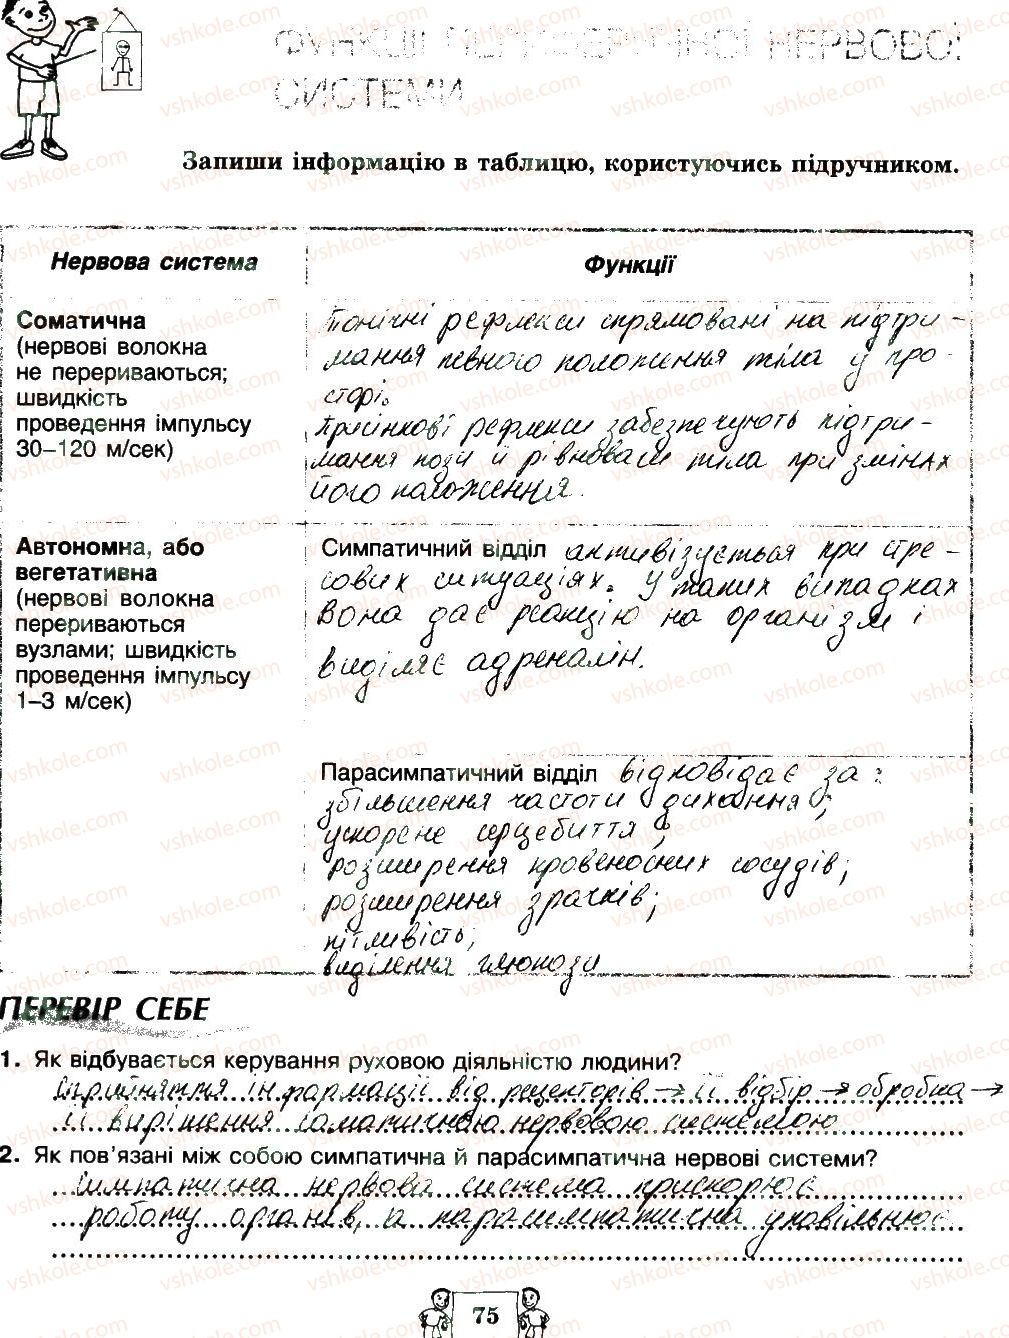 ФУНКЦІЇ ПЕРИФЕРИЧНОЇ НЕРВОВОЇ
СИСТЕМИ
Запиши інформацію в таблицю, користуючись підручником.
Нервова система
Функції
Соматична
(нервові волокна
не перериваються;
швидкість
проведення імпульсу
30–120 м/сек)
Тонічні рефлекси спрямовані на підтри-
мання певного положення тіла у про-
сторі.
Присінкові рефлекси забезпечують підтри-
мання пози й рівноваги тіла при змінах
його положення.
Автономна, або
вегетативна
(нервові волокна
перериваються
вузлами; швидкість
проведення імпульсу
1–3 м/сек)
Симпатичний відділ активізується при стре-
сових ситуаціях. У таких випадках
вона дає реакцію на організм і
виділяє адреналін.
Парасимпатичний відділ відповідає за:
збільшення частоти дихання;
ускорене серцебиття;
розширення кровеносних сосудів;
розширення зрачків;
пітливість;
виділення глюкози
ПЕРЕВІР СЕБЕ
1. Як відбувається керування руховою діяльністю людини?
Сприйняття інформації від рецепторів → її відбір → обробка →
її вирішення соматичною нервовою системою
2. Як пов'язані між собою симпатична й парасимпатична нервові системи?
Симпатична нервова система прискорює
роботу органів, а парасимпатична уповільнює
75